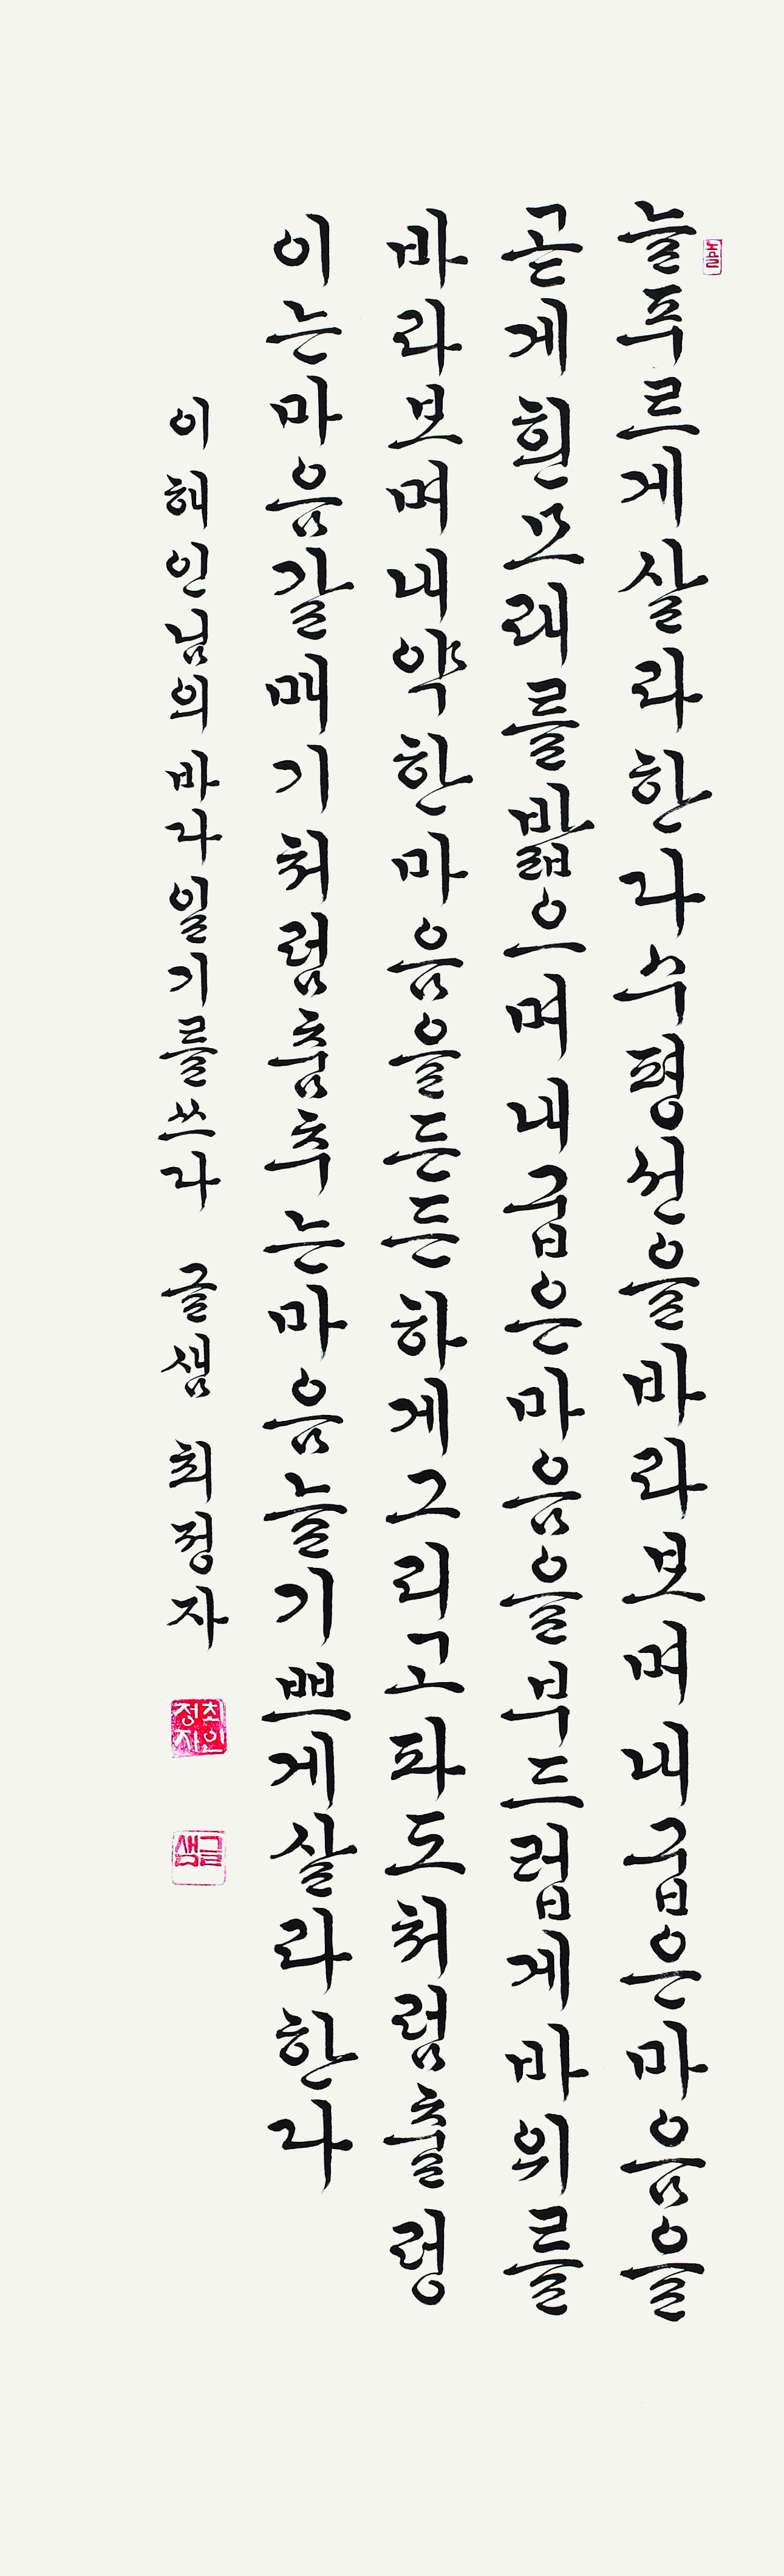 늘푸르게살라한다수평선을바라보며내굽은마음을
곧게흰모래를밟으며내굽은마음을부드럽게바위를
바라보며내약한마음을든든하게그리고파도처럼출렁
이는마음갈매기처럼춤추는마음늘기쁘게살라한다
이해인님의바다일기를쓰다 글샘 최정자
최정자인
글샘